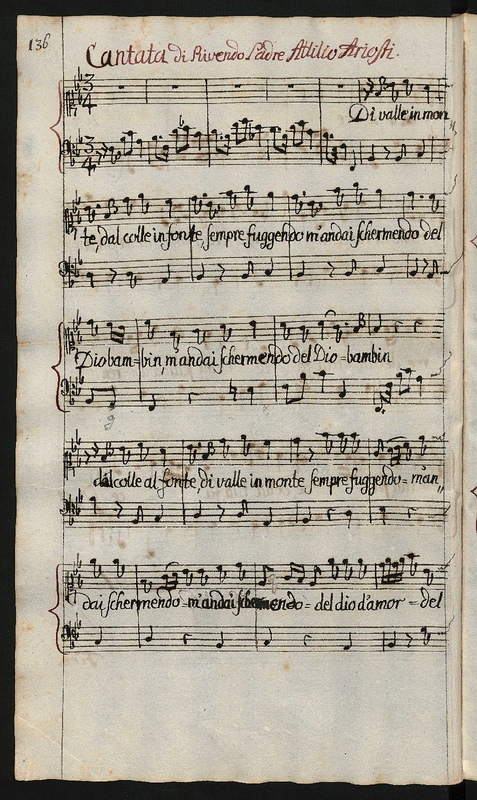 136
Cantata di Rivendo Padre Attilio Ariosti.
Di valle in mon
te, dal colle in fonte, sempre fuggendo m'andai schermendo del
Dio bam=bin, m'andai schermendo del Dio=bambin
dal colle al fonte, di valle in monte sempre fuggendo=m'an
dai schermendo=m'andai schermendo=del dio d'amor=del